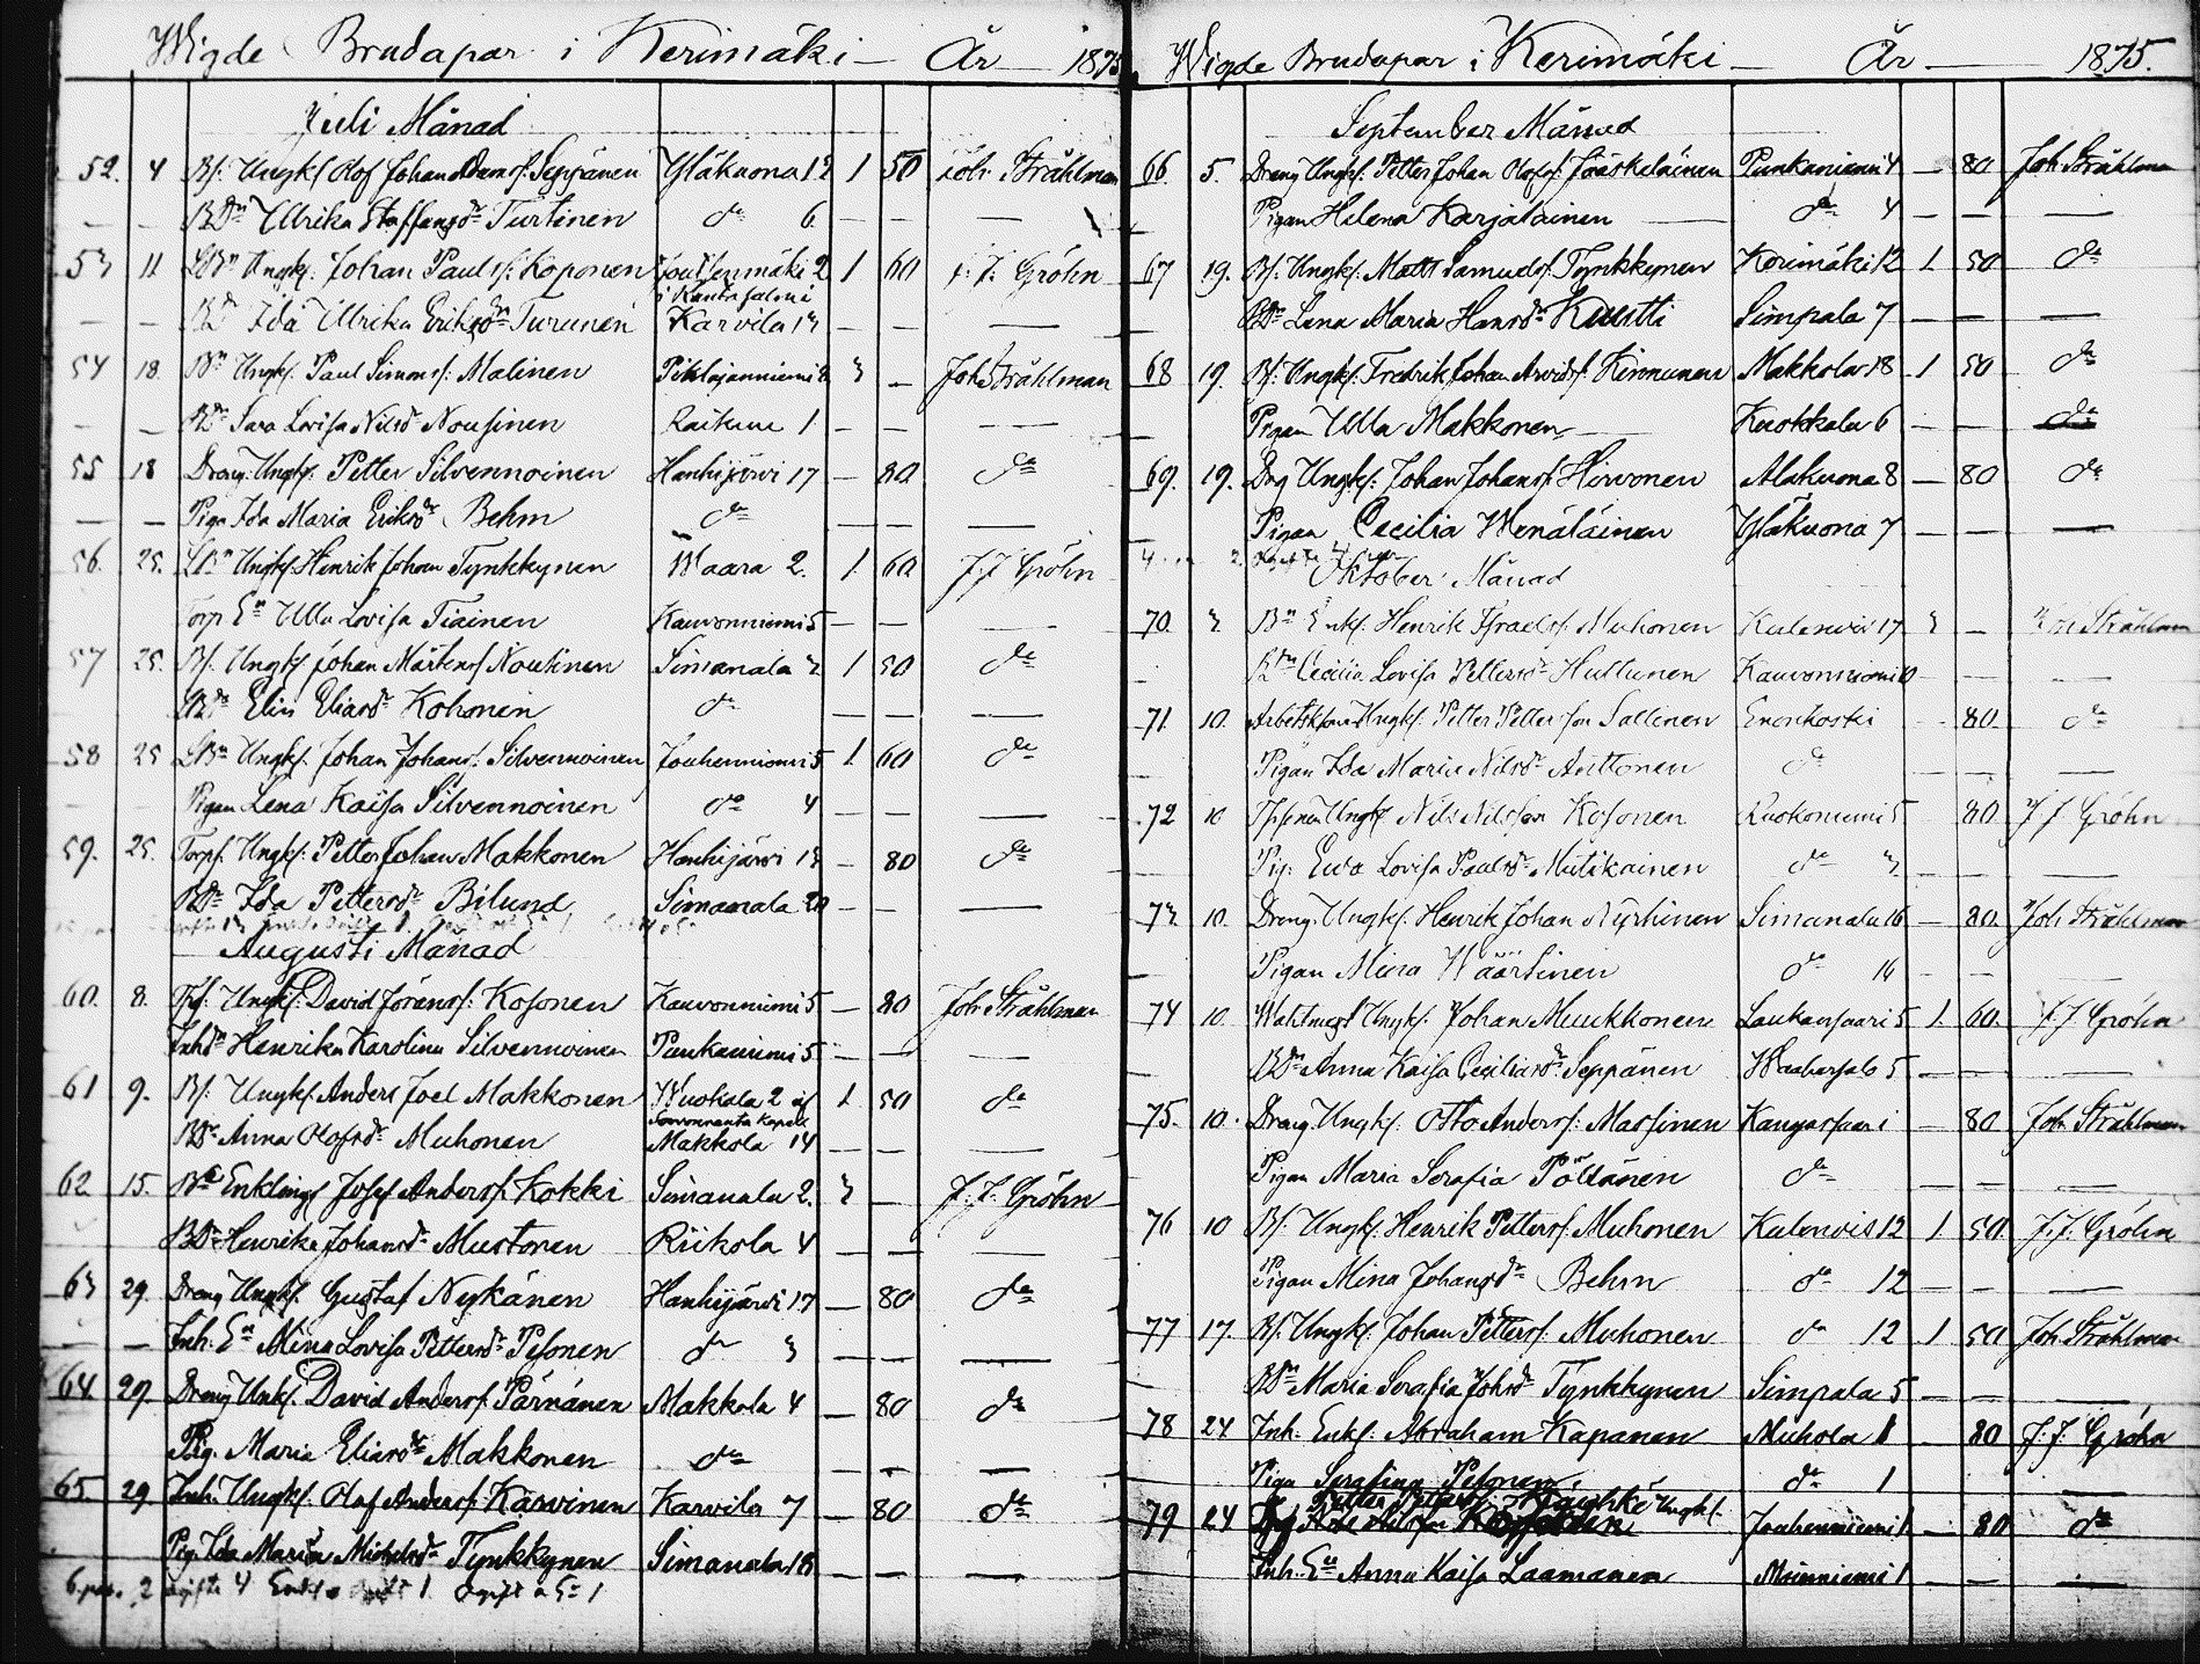 Wigde Brudapar i Kerimäki — År — 1875
Juli Månad
52. 4 Bs. Ungkl Olof Johan Adams: Seppänen Yläkuona 12 1 50 Joh. Stråhlman
— — BDr Ulrika Staffansdr Turtinen do 6 — — —
53 11 LBn Ungk: Johan Pauls: Koponen Jouhenmäki 2 1 60 J. J. Gröhn
i Rantasalmi
— — BDr Ida Ulrika Eriksdr Turunen Karvila 13 — — —
54 18. Bn Ungk: Paul Simons: Malinen Pihlajanniemi 8 3 — Joh Stråhlman
— — BDr Sara Lovisa Nilsdr Nousinen Raikuu 1 — — —
55 18 Dreng Ungk: Petter Silvennoinen Hanhijärvi 17 — 80 do
— — Piga Ida Maria Eriksdr Behm do — — —
56. 25. LBn Ungk: Henrik Johan Tynkkynen Waara 2. 1. 60 J. J Gröhn
Torp En Ulla Lovisa Tiainen Kauvonniemi 5 — — —
57 25. Bs. Ungk: Johan Mårtens Noutinen Simanala 3 1 50 do
BDr Elin Eliasdr Kohonen do — — —
58 25 LBn Ungk: Johan Johans: Silvennoinen Jouhenniemi 5 1 60 do
Pigan Lena Kaisa Silvennoinen do 4 — — —
59. 25. Torps. Ungk: Petter Johan Makkonen Hanhijärvi 13 — 80 do
BDr Ida Pettersdr Bilund Simanala 20 — — —
Augusti Månad
60. 8. Ungk: David Görans: Kosonen Kauvonniemi 5 — 80 Joh Stråhlman
Inhdr Henrika Karolina Silvennoinen Punkaniemi 5 — — —
61 9. Bs. Ungk: Anders Joel Makkonen Wuokala 2 af 1 50 do
Savonranta Kapell
BDr Anna Olofsdr Muhonen Makkola 14 — — —
62 15. Bn Enkling Josef Anders: Kokki Simanala 2. 3 — J. J. Gröhn
BDr Henrika Johansdr Mustonen Riikola 4 — — —
63 29. Dreng Ungk: Gustaf Nykänen Hanhijärvi 17 — 80 do
— — Inh: En Mina Lovisa Pettersdr Pesonen do 3 — — —
64 29. Dreng Unk: David Anders: Pärnänen Makkola 4 — 80 do
Pig. Maria Eliasdr Makkonen do — — —
65. 29. Inh. Ungk: Olof Anders: Karvinen Karvila 7 — 80 do
Pig. Ida Maria Michelsdr Tynkkynen Simanala 18 — — —
6 par. 2 ogifte 4 Enkl o ogift 1 ogift o En 1
Wigde Brudapar i Kerimäki — År — 1875.
September Månad
66 5. Dreng Ungk: Petter Johan Olofs: Jääskeläinen Punkaniemi 4 — 80 Joh Stråhlman
Pigan Helena Karjalainen — do 4 — — —
67 19. Bs. Ungk: Matts Samuels: Tynkkynen Kerimäki 12 1 50 do
BDr Lena Maria Hansdr Kuutti Simpala 7 — — —
68 19. Bs. Ungk: Fredrik Johan Arvids: Kinnunen Makkola 18 1 50 do
Pigan Ulla Makkonen — Kuokkala 6 — — do
69. 19. Drg Ungk: Johan Johans: Hirvonen Alakuona 8 — 80 do
Pigan Cecilia Wenäläinen Yläkuona 7 — — —
Oktober Månad
70. 3. Bn Enk: Henrik Israels: Muhonen Kulenvis 17 3 — Joh Stråhlman
BDr Cecilia Lovisa Pettersdr Huttunen Kauvonniemi 10 — — —
71. 10. Arbetskarl Ungk: Petter Petterson Sallinen Enonkoski — 80. do
Pigan Ida Maria Nilsdr Anttonen do — — —
72 10 Ungk: Nils Nilsson Kosonen Ruokoniemi 5 80. J. J. Gröhn
Pig: Eva Lovisa Paulsdr Mutikainen do 3 — — —
73 10. Dreng Ungk: Henrik Johan Nyrhinen Simanala 16 — 80. Joh Stråhlman
Pigan Mina Väärtinen do 16 — — —
74 10. Ungk: Johan Muukkonen Laukansaari 5 1. 60. J. J. Gröhn
BDr Anna Kaisa Ceciliasdr Seppänen Haabasalo 5 — — —
75. 10. Dreng Ungk: Otto Anders: Massinen Kangassaari — 80 Joh Stråhlman
Pigan Maria Serafia Pöllänen do — — —
76 10 Bs. Ungk: Henrik Petters: Muhonen Kulenvis 12 1. 50. J. J. Gröhn
Pigan Mina Johansdr Behm do 12 — — —
77 17. Bs. Ungk: Johan Petters: Muhonen do 12 1 50 Joh Stråhlman
BDr Maria Serafia Johsdr Tynkkynen Simpala 5 — — —
78 24 Inh: Enk: Abraham Kapanen Muhola 1 — 80 J. J. Gröhn
Piga Serafina Pesonen do 1 —
Petter Petters: Ungk:
79 24 Jouhenniemi 1 — 80 do
Inh. En Anna Kaisa Laamanen Moinniemi 1 — — —